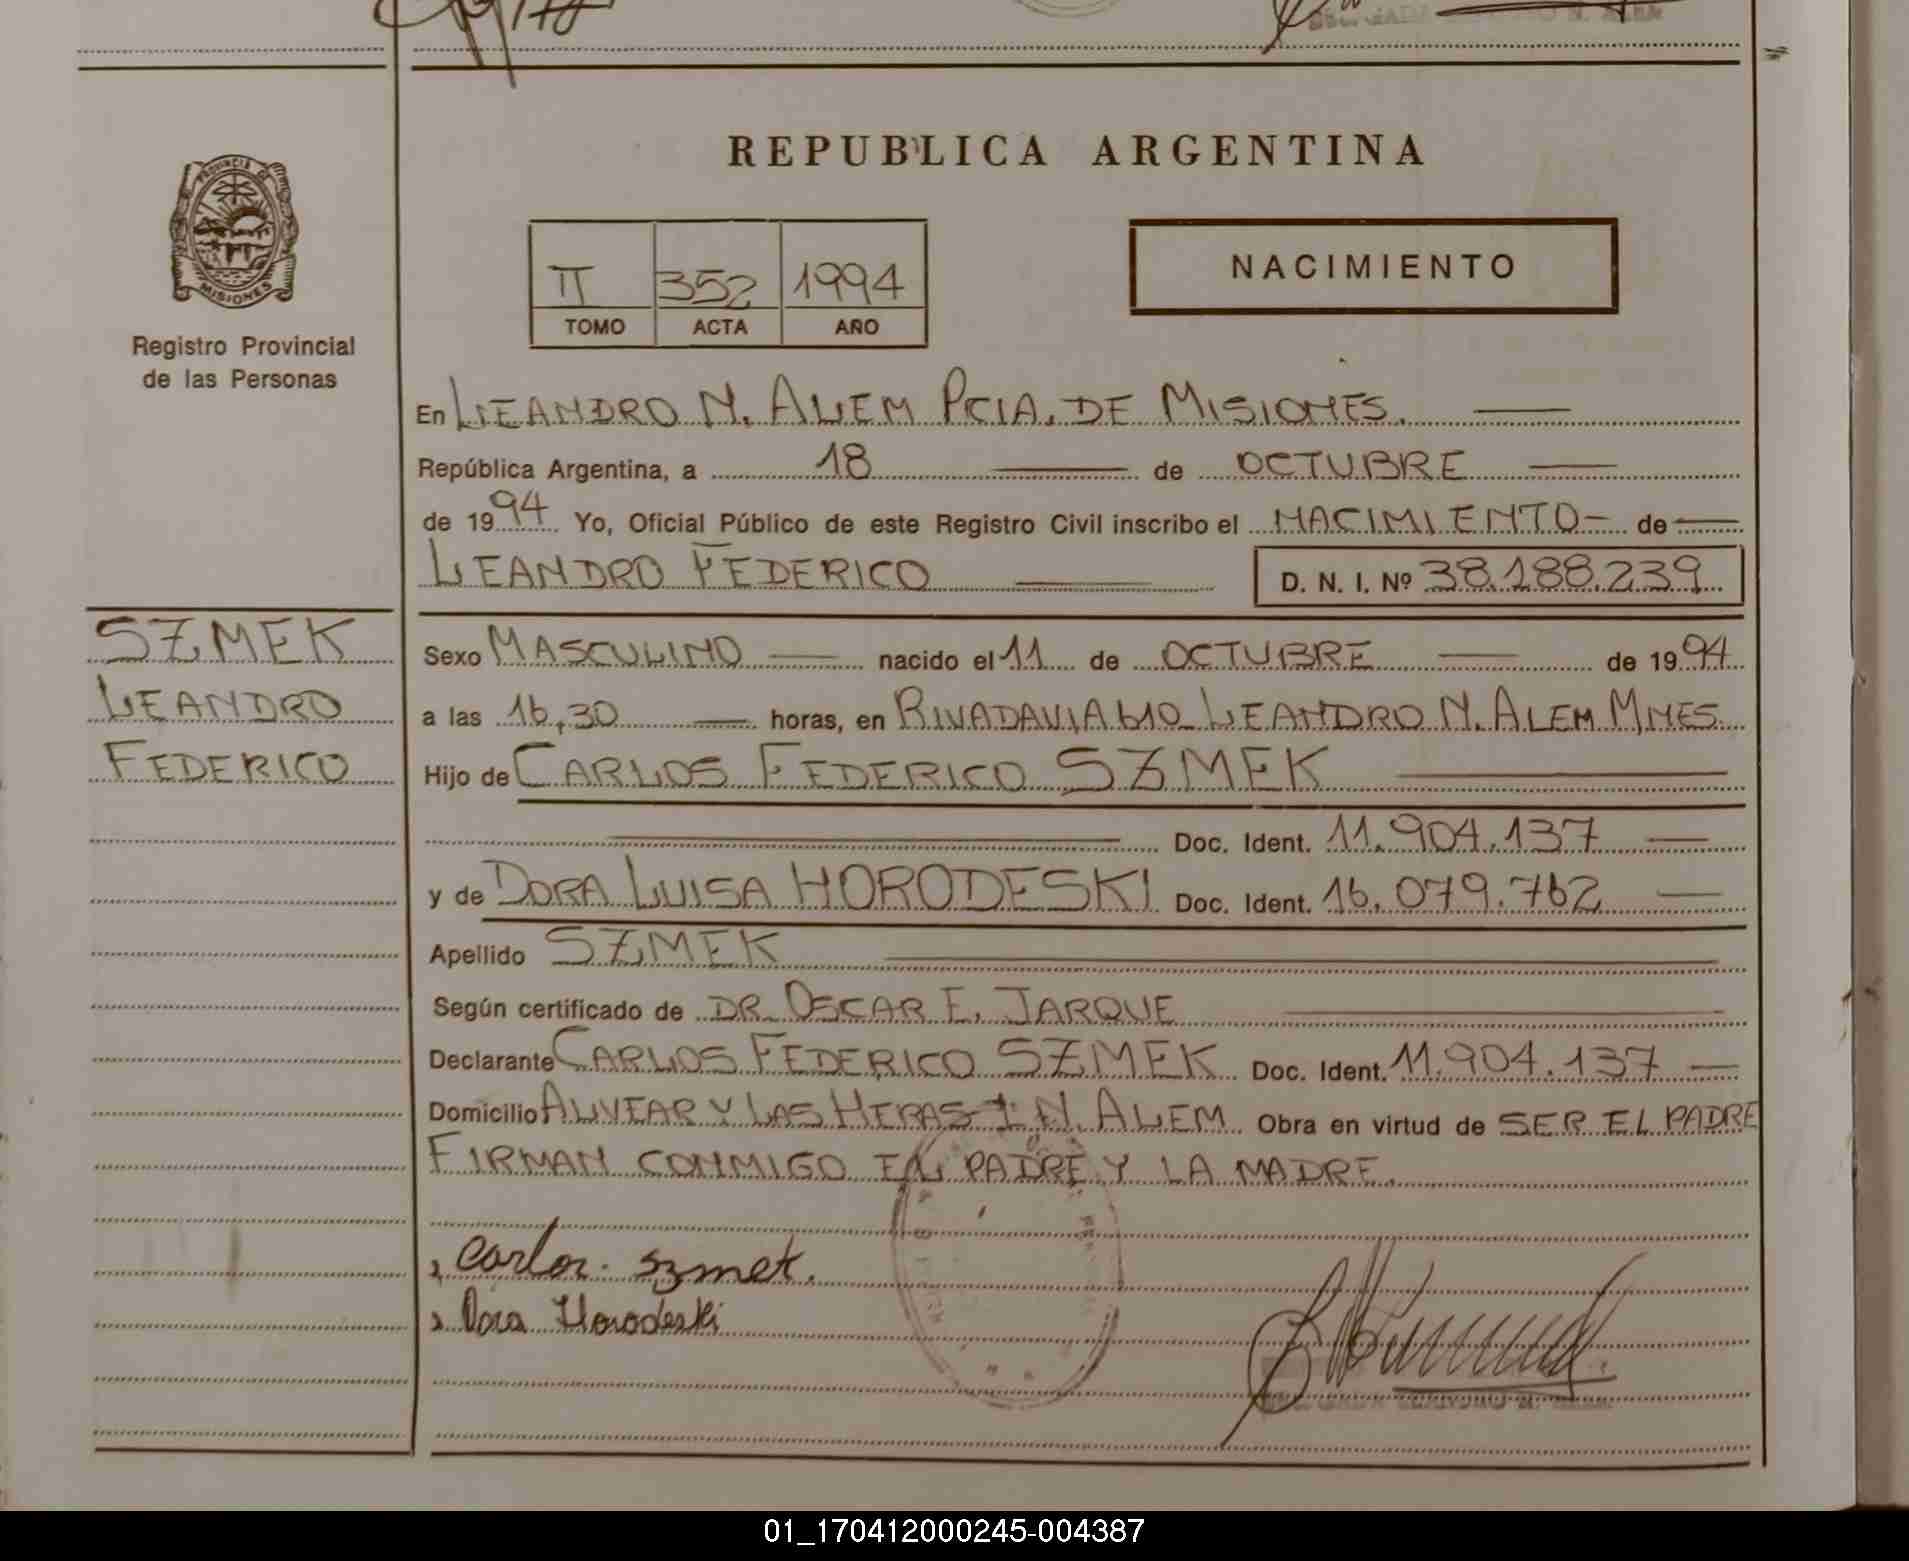 REPUBLICA ARGENTINA
PROVINCIA DE
MISIONES
Registro Provincial
de las Personas
II 352 1994
TOMO ACTA AÑO
NACIMIENTO
En LEANDRO N. ALEM PCIA. DE MISIONES.
República Argentina, a 18 de OCTUBRE
de 1994 Yo, Oficial Público de este Registro Civil inscribo el NACIMIENTO- de
LEANDRO FEDERICO D. N. I. Nº 38.188.239
SZMEK
LEANDRO
FEDERICO
Sexo MASCULINO nacido el 11 de OCTUBRE de 1994
a las 16,30 horas, en RIVADAVIA 610_ LEANDRO N. ALEM MNES.
Hijo de CARLOS FEDERICO SZMEK
Doc. Ident. 11.904.137
y de DORA LUISA HORODESKI Doc. Ident. 16.079.762
Apellido SZMEK
Según certificado de DR. OSCAR E. JARQUE
Declarante CARLOS FEDERICO SZMEK Doc. Ident. 11.904.137
Domicilio ALVEAR Y LAS HERAS N. ALEM Obra en virtud de SER EL PADRE
FIRMAN CONMIGO EL PADRE Y LA MADRE.
Carlos. Szmek.
Dora Horodeski
01_170412000245-004387